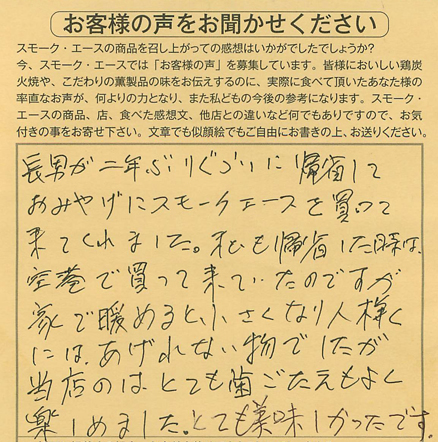 お客様の声をお聞かせください
スモーク・エースの商品を召し上がっての感想はいかがでしたでしょうか?
今、スモーク・エースでは「お客様の声」を募集しています。皆様においしい鶏炭
火焼や、こだわりの薫製品の味をお伝えするのに、実際に食べて頂いたあなた様の
率直なお声が、何よりの力となり、また私どもの今後の参考になります。スモーク・
エースの商品、店、食べた感想文、他店との違いなど何でもありですので、お気
付きの事をお寄せ下さい。文章でも似顔絵でもご自由にお書きの上、お送りください。
長男が二年ぶりぐらいに帰省して
おみやげにスモークエースを買って
来てくれました。私も帰省した時は、
空港で買って来ていたのですが
家で暖めると小さくなり人様く
には、あげれない物でしたが
当店のは、とても歯ごたえもよく
楽しめました。とても美味しかったです。